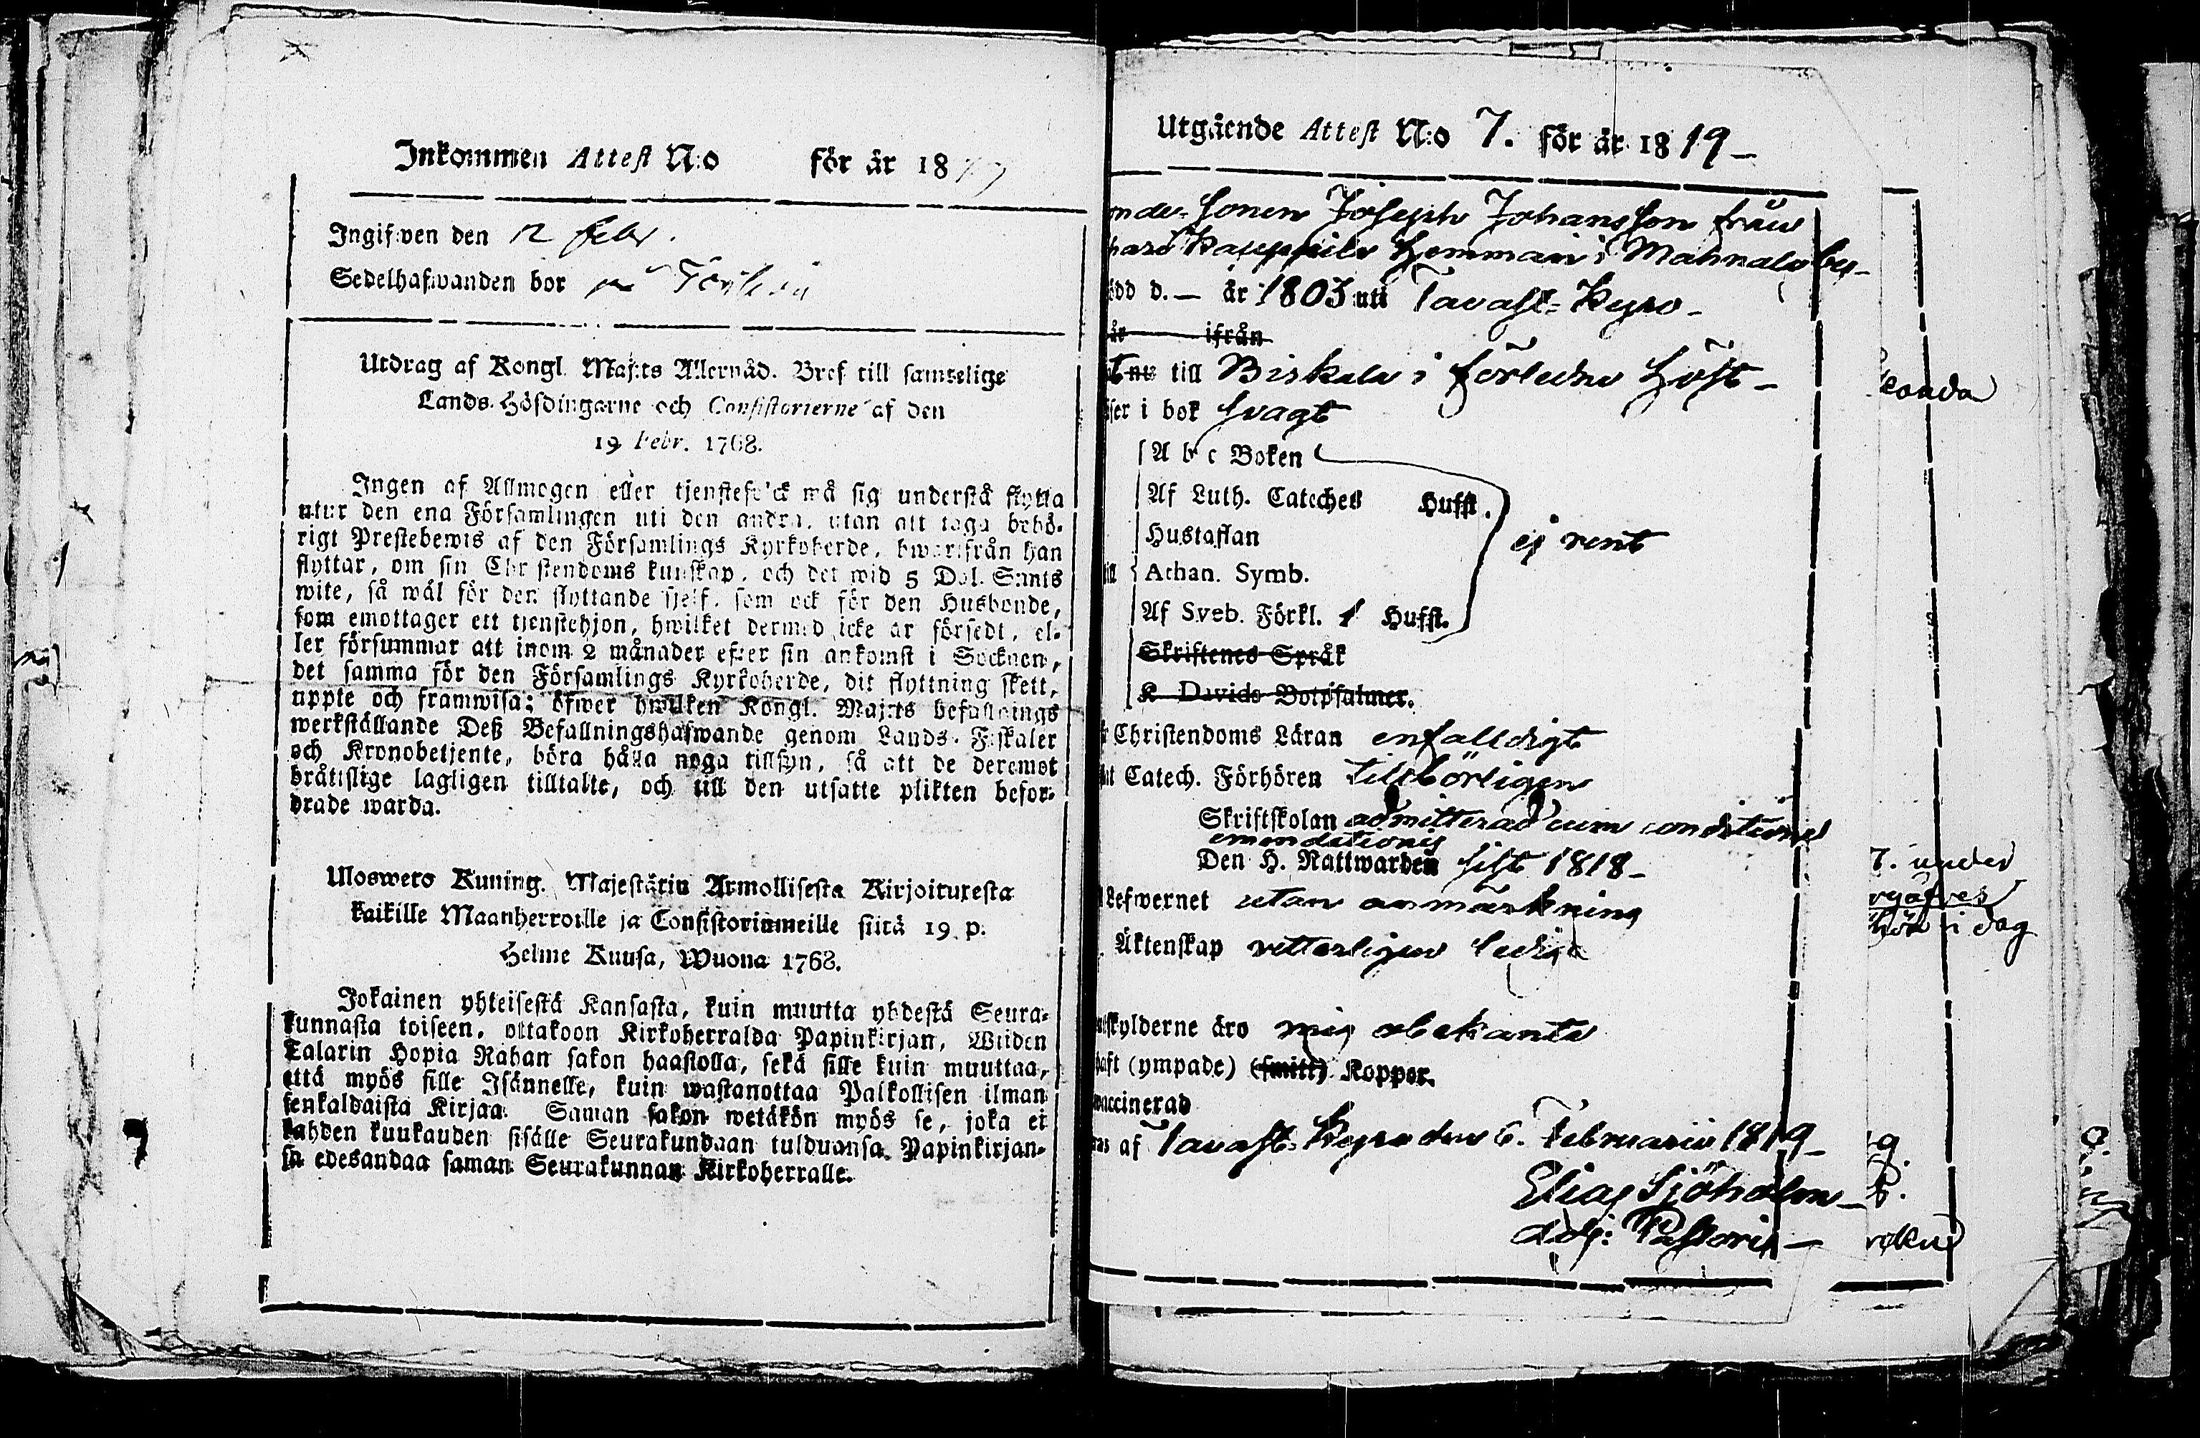 Inkommen Attest N:o för år 18
Ingifwen den 12 febr.
Sedelhafwanden bor på
Utdrag af Kongl. Maj:ts Allernåd. Bref till samtelige
Lands-Höfdingarne och Consistorierne af den
19 Febr. 1768.
Ingen af Allmogen eller tjenstefolck må sig understå flytta
utur den ena Församlingen uti den andra, utan att taga behö-
rigt Prestebewis af den Församlings Kyrkoherde, hwarifrån han
flyttar, om sin Christendoms kunskap, och det wid 5 Dal. S:mts
wite, så wäl för den flyttande sjelf, som ock för den Husbonde,
som emottager ett tjenstehjon, hwilket dermed icke är försedt, el-
ler försummar att inom 2 månader efter sin ankomst i Socknen,
det samma för den Församlings Kyrkoherde, dit flyttning skett,
uppte och framwisa; öfwer hwilken Kongl. Maj:ts befallnings
werkställande Deß Befallningshafwande genom Lands-Fiskaler
och Kronobetjente, böra hålla noga tillsyn, så att de deremot
bråttslige lagligen tilltalte, och till den utsatte plikten befor-
drade warda.
Ulosweto Kuning. Majestätin Armollisesta Kirjoituxesta
kaikille Maanherroille ja Consistoriumeille siitä 19 p.
Helme Kuusa, Wuona 1768.
Jokainen yhteisestä Kansasta, kuin muutta yhdestä Seura-
kunnasta toiseen, ottakoon Kirkoherralda Papinkirjan, Wiiden
Talarin Hopia Rahan sakon haastolla, sekä sille kuin muuttaa,
että myös sille Isännelle, kuin wastanottaa Palkollisen ilman
senkaldaista Kirjaa. Saman sakon wetäkön myös se, joka ei
kahden kuukauden sisälle Seurakundaan tulduansa, Papinkirjan-
sa edesandaa saman Seurakunnan Kirkoherralle.
Utgående Attest N:o 7. för år 1819 -
onde-Sonen Joseph Johansson från
Kauppila Hemman i Mahnala by-
ödd d. - år 1803 uti Tavast-Kyro -
år ifrån
nu till Birkala i förledne Höst -
ser i bok svagt
A b c Boken
Af Luth. Cateches Hufst.
Hustaflan
ej rent
till Athan. Symb.
Af Sveb. Förkl. 1 Hufst.
Skriftenes Språk
K Davids Botpsalmer.
Christendoms Läran enfalldigt
Catech. Förhören tillbörligen
Skriftskolan admitterad cum conditione
emendationis
Den H. Nattwarden sist 1818 -
Lefwernet utan anmärkning
Äktenskap veterligen ledig
skylderne äro mig obekante
haft (ympade) (smitt) Koppor.
vaccinerad
af Tavast-Kyro den 6. Februarii 1819 -
Elias Sjöholm -
Adj: Pastoris -
7. under
i dag